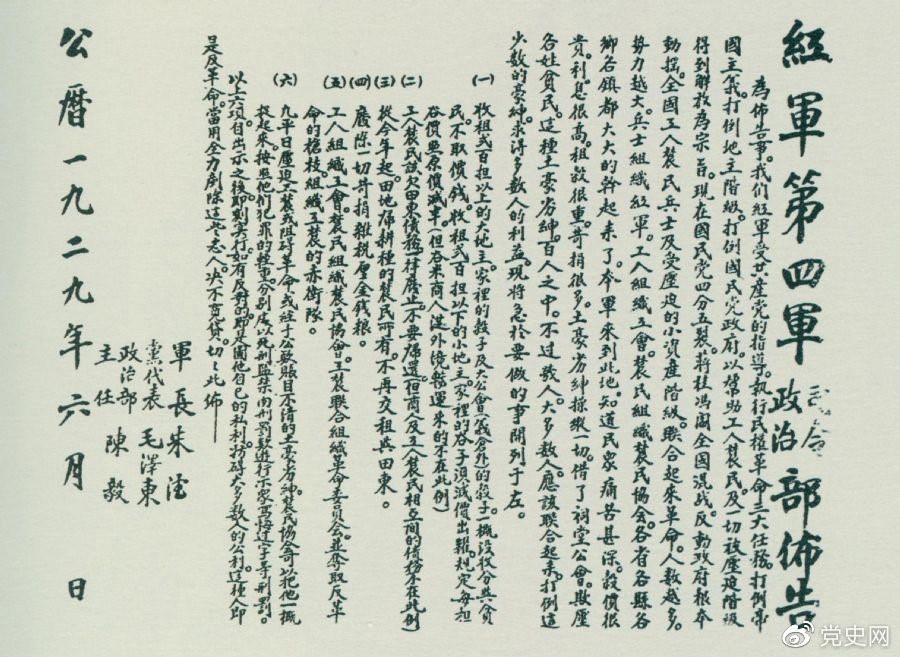 紅軍第四軍司令政治部佈告
為佈告事。我們紅軍受共產黨的指導。執行民權革命三大任務。打倒帝
國主義。打倒地主階級。打倒國民黨政府。以幫助工人農民。及一切被壓迫階級
得到解放為宗旨。現在國民黨四分五裂。蔣桂馮閻全國混战。反動政府根本
動搖。全國工人農民兵士及受壓迫的小資產階級。聯合起來革命。人數越多。
勢力越大。兵士組織紅軍。工人組織工會。農民組織農民協会。各省各縣各
鄉各鎮都大大的幹起來了。本軍來到此地。知道民衆痛苦甚深。穀價很
貴。利息很高。租穀很重。苛捐很多。土豪劣紳操縱一切。借了祠堂公會。欺壓
各姓貧民。這種土豪劣紳。百人之中。不过数人。大多数人。應該联合起來。打倒這
少数的豪紳。求得多数人的利益。現將急於要做的事開列于左。
(一) 收租弍百担以上的大地主。家裡的穀子及大公會(義倉外)的穀子。一概没收分與貧
民。不取價钱。收租弍百担以下的小地主。家裡的谷子須減價出糶。規定每担
谷價照原價減半。(但谷米商人從外境辦運來的不在此例)
(二) 工人農民該欠田東債務。一律廢止。不要歸還。(但商人及工人農民相互間的債務不在此例)
(三) 從今年起。田地歸耕種的農民所有。不再交租與田東。
(四) 廢除一切苛捐雜税厘金钱粮。
(五) 工人組織工會。農民組織農民協會。工農联合組織革命委員会。並奪取反革
命的槍枝組織工農的赤衛隊。
(六) 凡平日壓迫工農或阻碍革命。或經手公欵賬目不清的土豪劣紳。農民協會可以把他一概
捉起來。按照他们犯罪的輕重。分别處以死刑監禁肉刑罰款遊行示衆寫悔过字等刑罰。
以上六項自出示之後。即刻实行。如有反對的。即是圖他自己的私利。妨碍大多数人的公利。這種人即
是反革命。當用全力剷除這些之人。决不寬貸。切切此佈
軍長 朱德
黨代表 毛澤東
政治部主任 陳毅
公曆一九二九年六月 日
党史网